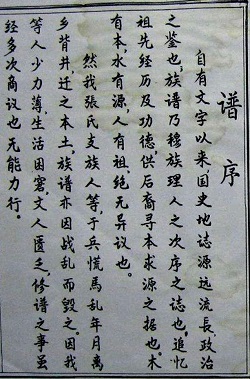 谱序
自有文字以来国史地誌源远流長,政治
之鉴也,族谱乃穆族理人之次序之誌也,追忆
祖先经历及功德供后裔寻本求源之据也。木
有本水有源,人有祖,绝无异议也。
然我張氏支族人等,于兵慌馬乱年月离
乡背井,迁之本土,族谱亦因战乱而毁之。因我
等人少力薄,生活困窘,文人匮乏,修谱之事虽
经多次商议也无能力行。